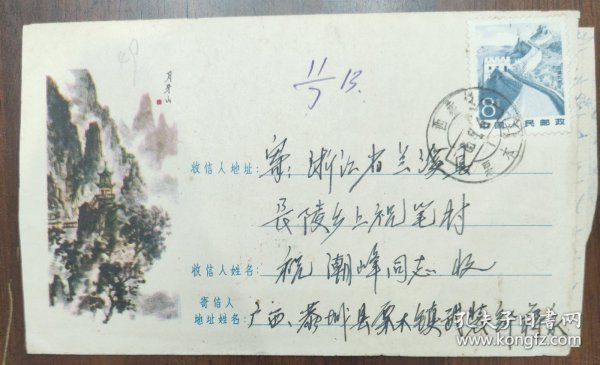 月牙山
11/7 13.
8
中国人民邮政
收信人地址：寄：浙江省兰溪县
长陵乡上祝笔村
收信人姓名：祝潮峰同志收
寄信人
地址姓名：广西、恭城县栗木镇
孔夫子旧书网
www.kongfz.com